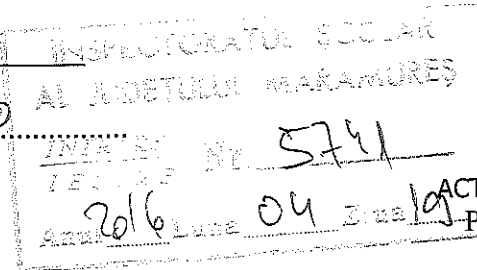 INSPECTORATUL ȘCOLAR
AL JUDEȚULUI MARAMUREȘ
INTRARE Nr. 5741
IEȘIRE
Anul 2016 Luna 04 Ziua 19
ACT
P